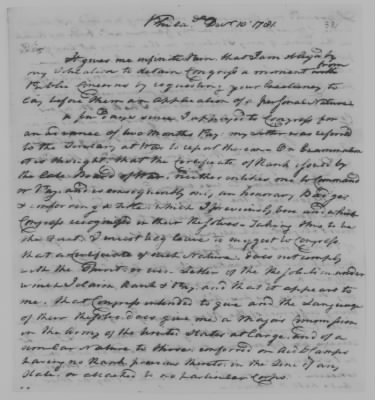 Philad.a Decr. 10th 1781.
It gives me infinite Pain that I am obliged by
my Situation to detain Congress a moment from
Public Concerns by requesting your Excellency to
lay before them an application of a personal Nature
a few Days since I applied to Congress for
an advance of two Months Pay. my Letter was referred
to the Secretary at War to report thereon. On Examination
it is thought that the Certificate of Rank issued by
the late Board of War, neither entitles me to Command
or Pay and is consequently only an honorary Badge
& conferring a title which I previously bore and which
Congress recognized in their Resolves. Taking this to be
the Fact. I must beg leave to suggest to Congress
that a Certificate of such Nature does not comply
with the Spirit or even Letter of the Resolution under
which I claim Rank & Pay, and that it appears to
me, that Congress intended to give and the Language
of their Resolve does give me a Majors Commission
in the Army of the United States at large, and of a
similar Nature to those conferred on Aid de Camps
having no Rank previous thereto in the Line of any
State, or attached to no particular Corps.